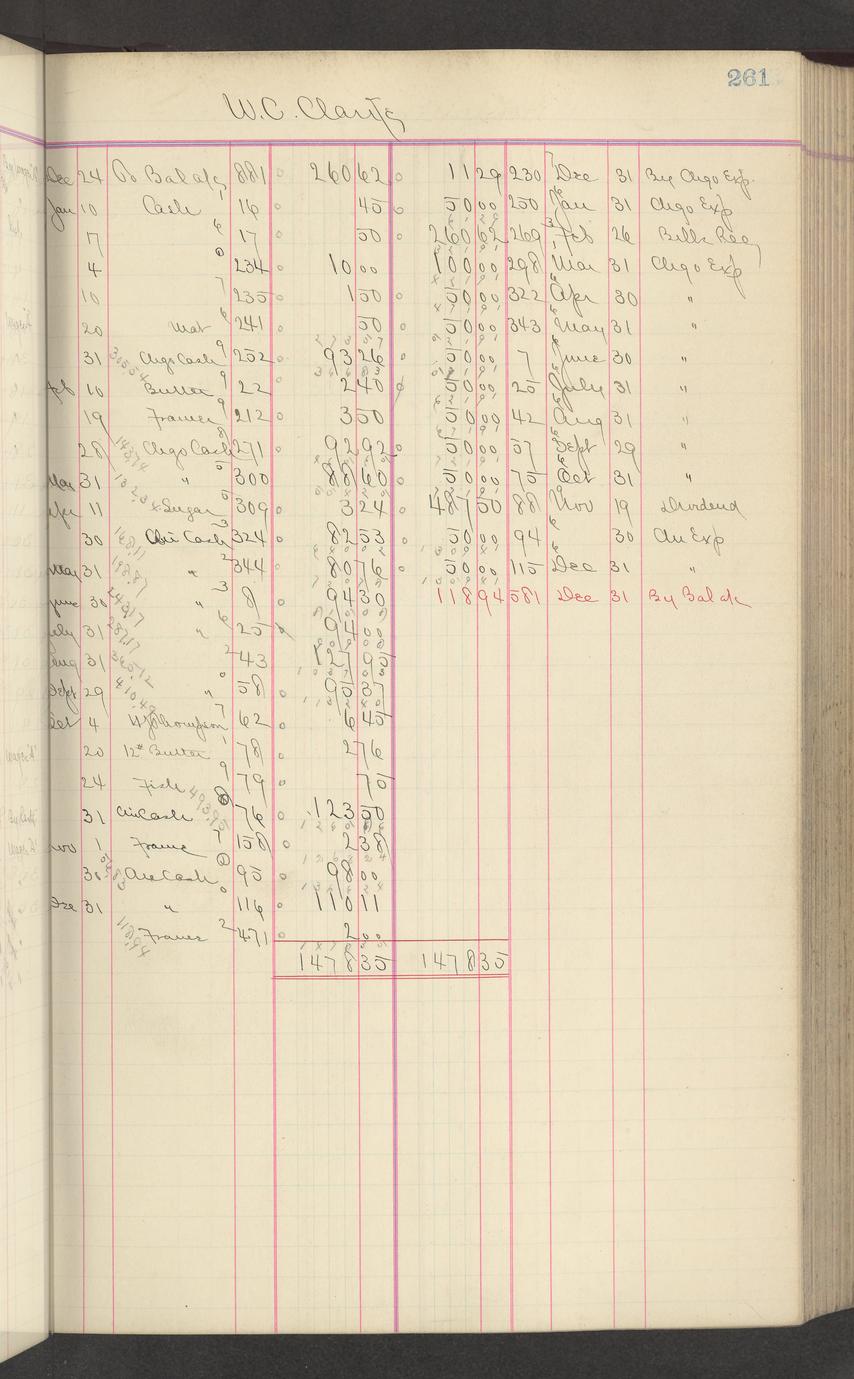 261
W.C. Clarke
Dec 24 To Bal a/c 881 260 62 11 29 230 Dec 31 By Chgo Exp.
Jan 10 Cash 16 45 50 00 250 Jan 31 Chgo Exp
17 17 50 260 62 269 Feb 26 Bills Rec
4 234 10 00 100 00 298 Mar 31 Chgo Exp
10 235 1 50 50 00 322 Apr 30 "
20 Mat 241 50 50 00 343 May 31 "
31 Chgo Cash 252 93 26 50 00 7 June 30 "
Feb 10 Butter 22 2 40 50 00 25 July 31 "
19 Frames 212 3 50 50 00 42 Aug 31 "
28 Chgo Cash 271 92 92 50 00 57 Sept 29 "
Mar 31 " 300 88 60 50 00 75 Oct 31 "
Apr 11 Sugar 309 3 24 487 50 88 Nov 19 Dividend
30 Chi Cash 324 82 53 50 00 94 30 Chi Exp
May 31 " 344 80 76 50 00 115 Dec 31 "
June 30 " 8 94 30 118 94 581 Dec 31 By Bal a/c
July 31 " 25 94 00
Aug 31 43 127 95
Sept 29 " 58 95 37
Oct 4 Thompson 62 6 45
20 12# Butter 78 2 76
24 Fish 79 75
31 Chi Cash 76 123 50
Nov 1 Frame 158 2 38
30 Chi Cash 95 98 00
Dec 31 " 116 110 11
Frames 471 2 00
1478 35 1478 35